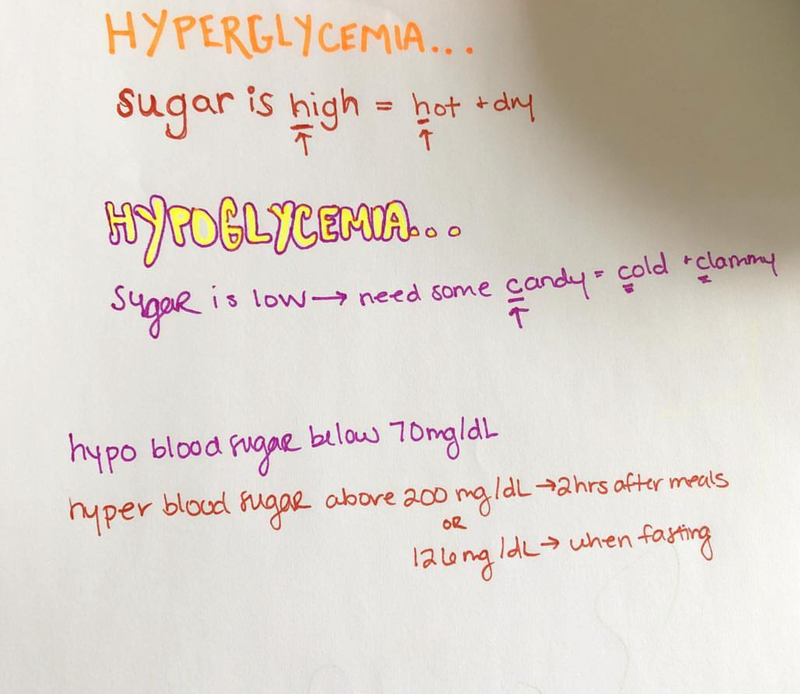 HYPERGLYCEMIA...
sugar is high = hot + dry
HYPOGLYCEMIA...
sugar is low → need some candy = cold + clammy
hypo blood sugar below 70mg/dL
hyper blood sugar above 200 mg/dL → 2hrs after meals
OR
126mg/dL → when fasting